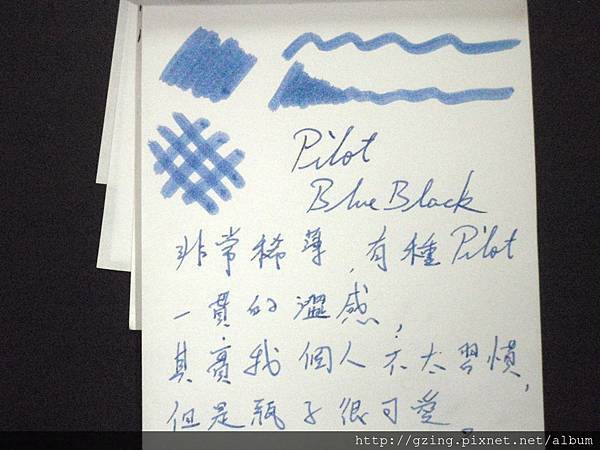 Pilot
Blue Black
非常稀薄,有種Pilot
一貫的澀感,
其實我個人不太習慣,
但是瓶子很可愛。
http://gzing.pixnet.net/album